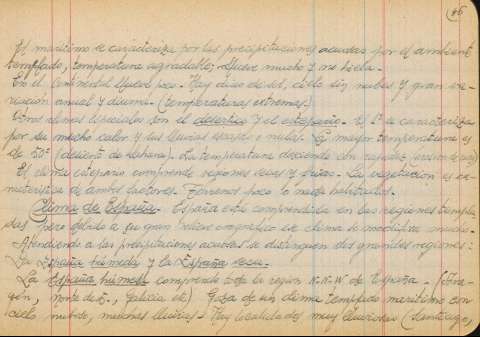 46
El marítimo se caracteriza por las precipitaciones acuosas, por el ambiente
templado, temperatura agradable; llueve mucho y no hiela.-
En el continental llueve poco.- Hay días de sol, cielo sin nubes y gran
anual y diurna.- (temperaturas extremas)
Otros climas especiales son el desértico y el estepario.- El 1º se caracteriza
por su mucho calor y sus lluvias escasas o nulas.- La mayor temperatura es
de 50º (desierto de Sahara). La temperatura desciende con rapidez
El clima estepario comprende regiones secas y frías.- La vegetación es
de ambos factores. Terrenos poco o nada habitados.-
Clima de España.- España está comprendida en las regiones templa-
das, pero debido a su gran relieve orográfico el clima se modifica mucho.-
Atendiendo a las precipitaciones acuosas se distinguen dos grandes regiones:
La España húmeda y la España seca.-
La España húmeda comprende toda la región N-N-W de España.- (Ara-
gón, Norte de , Galicia etc) Goza de un clima templado marítimo con
cielo nuboso, muchas lluvias.- Hay localidades muy lluviosas (Santiago,